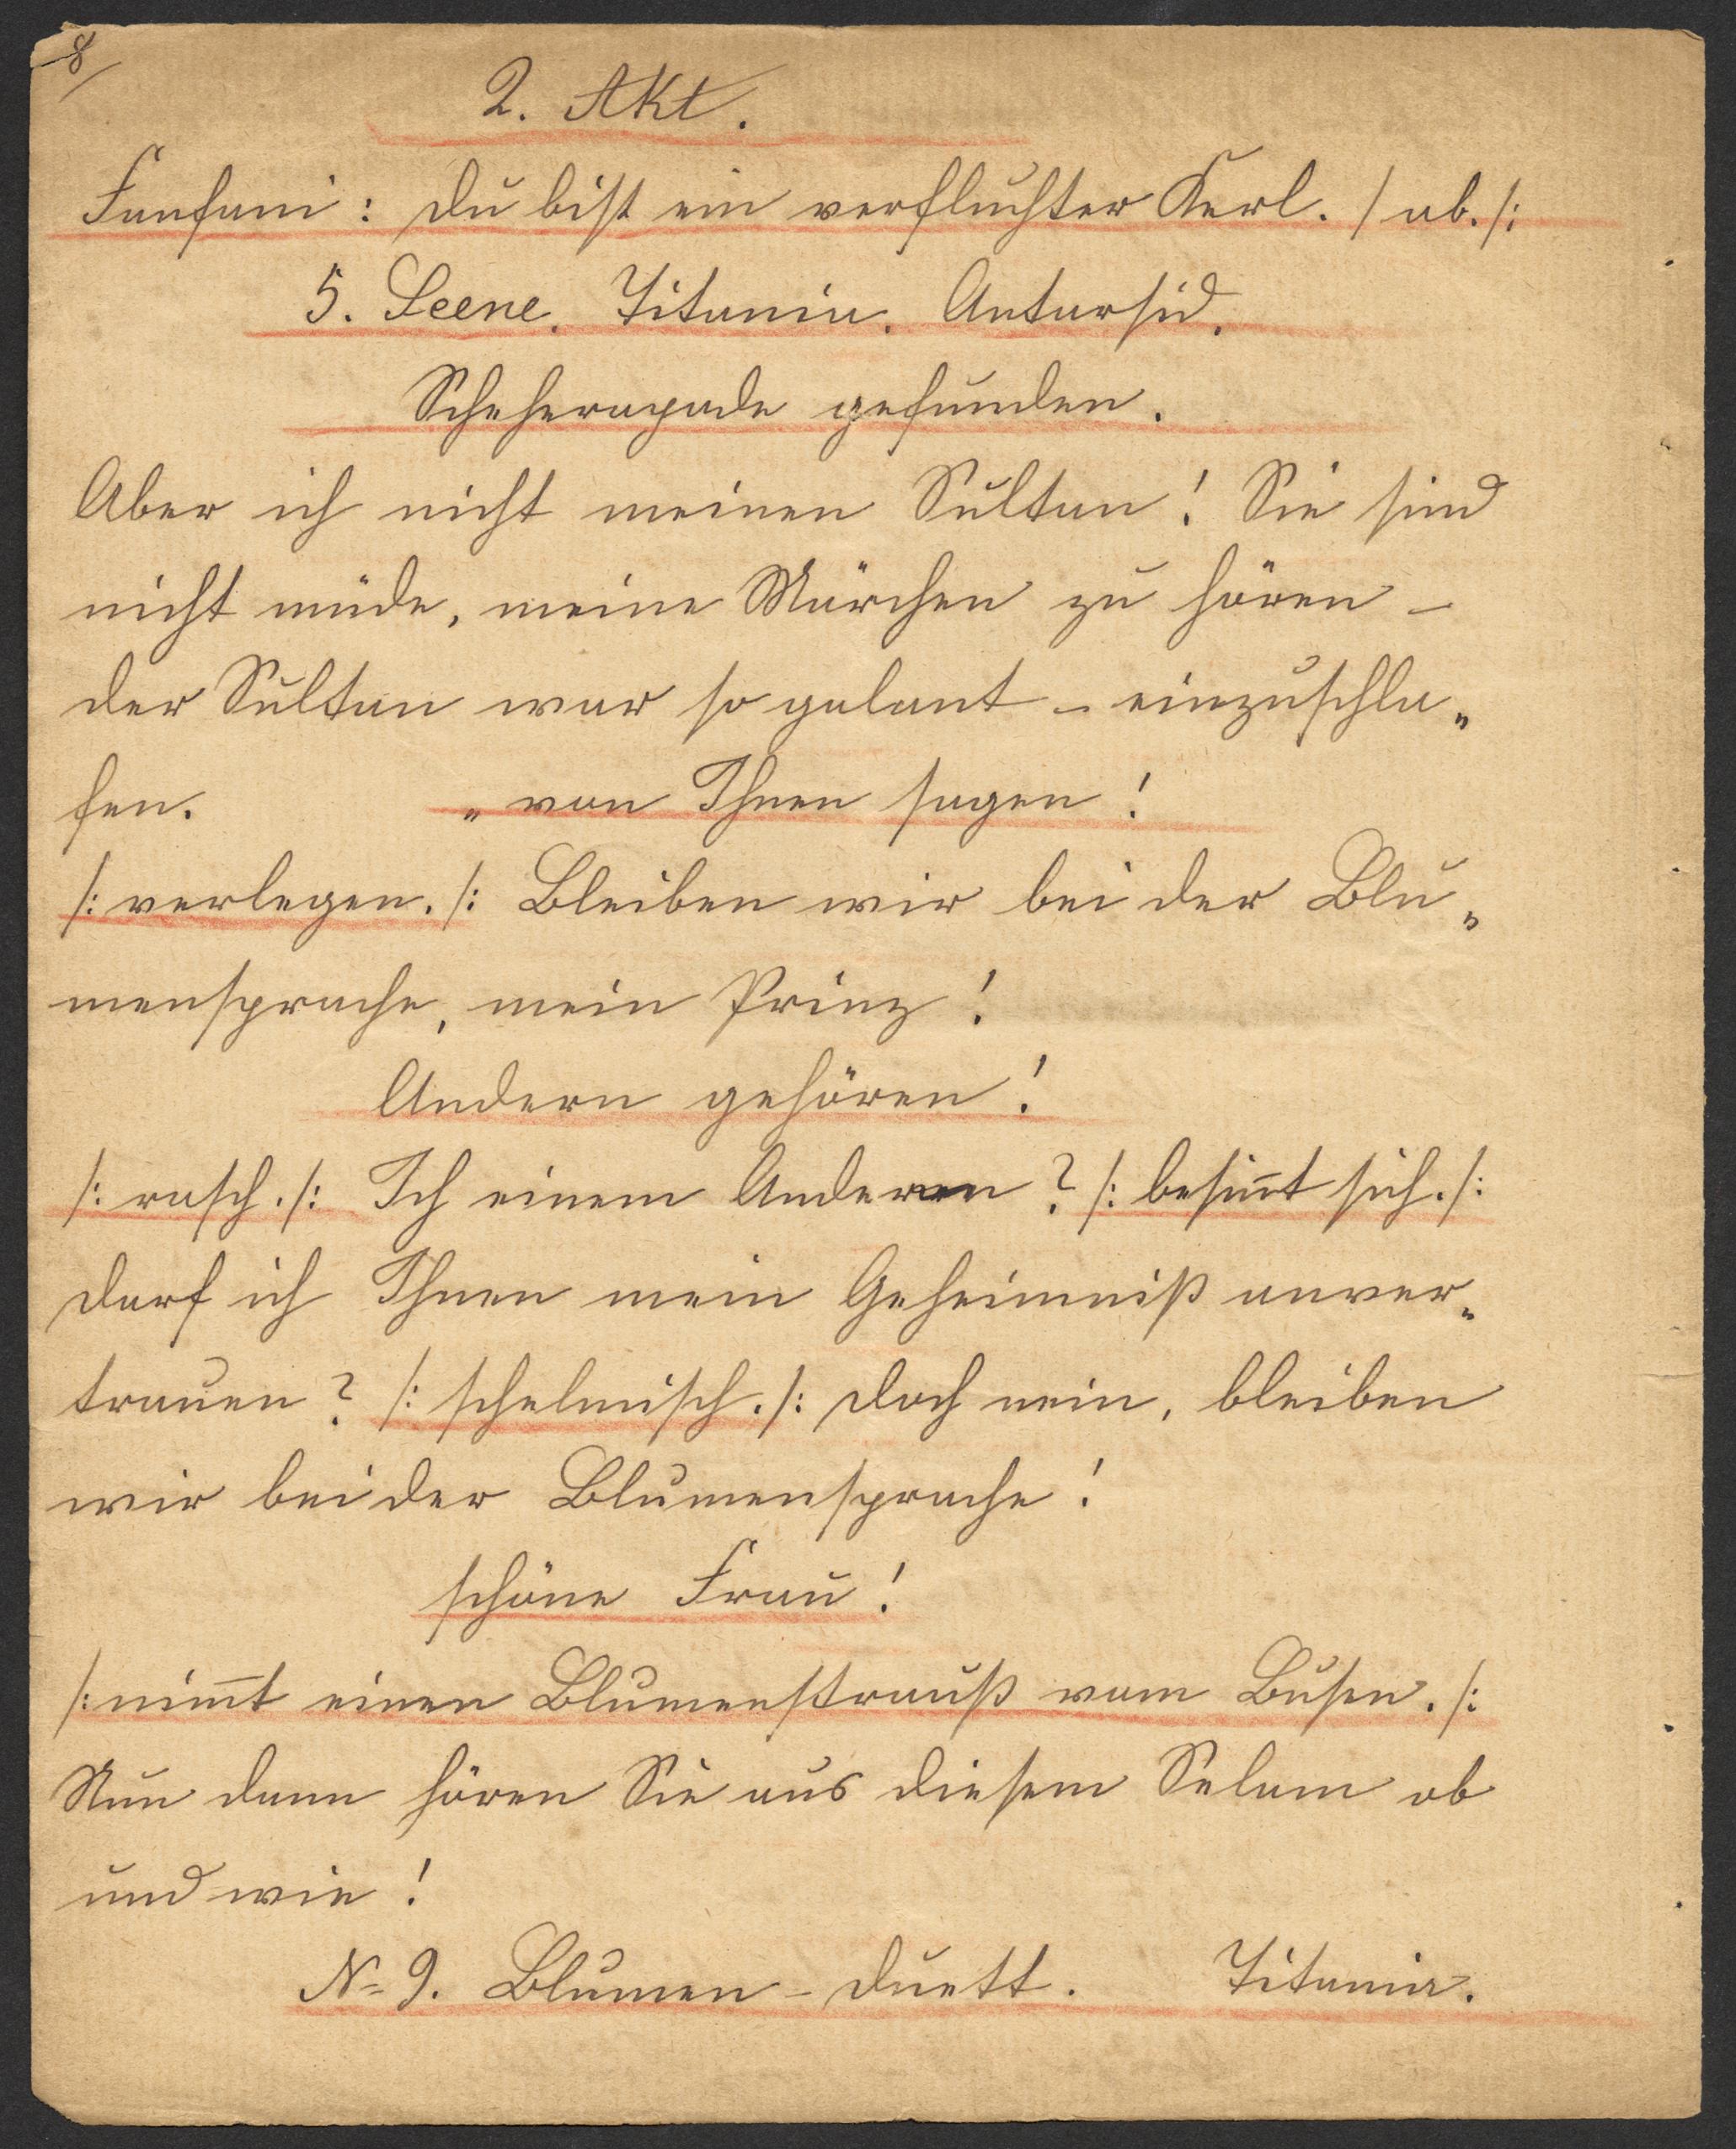 8
2. Akt.
Fanfani: Du bist ein verfluchter Kerl. / ab. /:
5. Scene. Titania. Antarsid.
Scheherazade gefunden.
Aber ich nicht meinen Sultan! Sie sind
nicht müde, meine Märchen zu hören –
der Sultan war so galant – einzuschla„
fen. „ von Ihnen sagen!
/: verlegen. /: Bleiben wir bei der Blu„
mensprache, mein Prinz!
Andern gehören!
/: rasch. /: Ich einem Anderen? /: besin̄t sich. /:
Darf ich Ihnen mein Geheimniß anver„
trauen? /: schelmisch. /: Doch nein, bleiben
wir bei der Blumensprache!
schöne Frau!
/: nim̄t einen Blumenstrauß vom Busen. /:
Nun dann hören Sie aus diesem Selam ob
und wie!
No 9. Blumen-Duett. Titania.